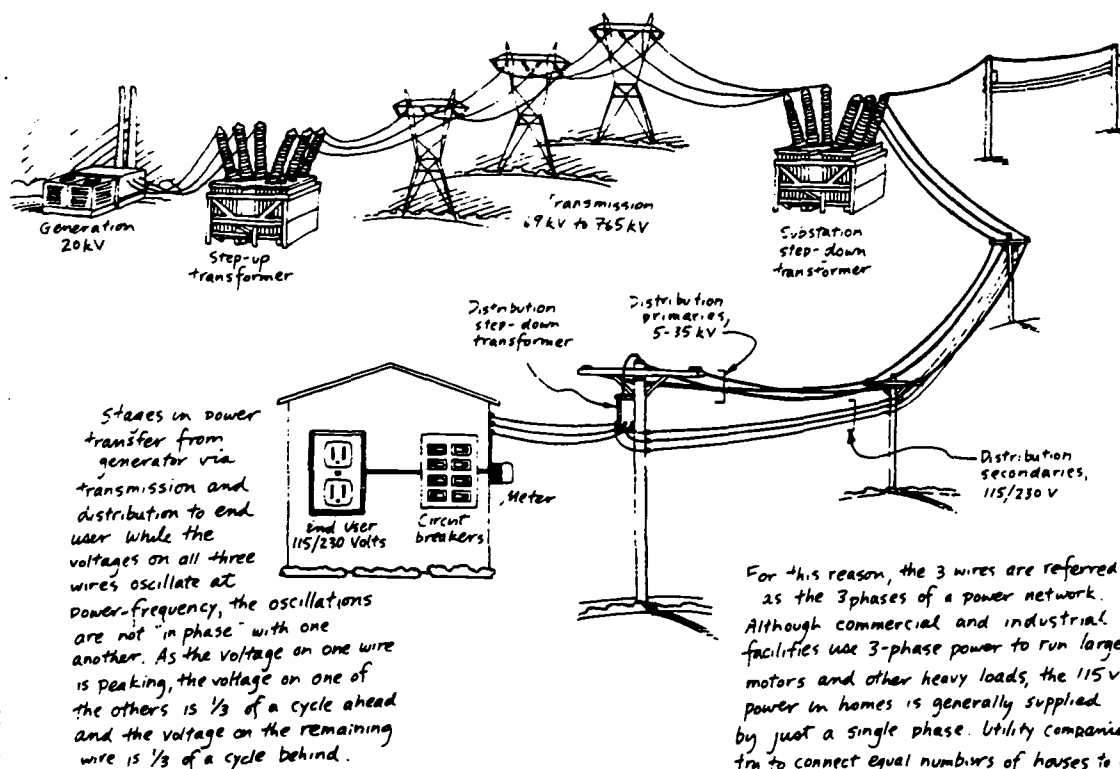 Generation
20kV
Step-up
transformer
Transmission
69kV to 765kV
Substation
step-down
transformer
Distribution
step-down
transformer
Distribution
primaries,
5-35 kV
Distribution
secondaries,
115/230 V
Meter
End User
115/230 Volts
Circuit
breakers
Stages in power
transfer from
generator via
transmission and
distribution to end
user while the
voltages on all three
wires oscillate at
power-frequency, the oscillations
are not "in phase" with one
another. As the voltage on one wire
is peaking, the voltage on one of
the others is 1/3 of a cycle ahead
and the voltage on the remaining
wire is 1/3 of a cycle behind.
For this reason, the 3 wires are referred
as the 3 phases of a power network.
Although commercial and industrial
facilities use 3-phase power to run large
motors and other heavy loads, the 115 v
power in homes is generally supplied
by just a single phase. Utility companie
try to connect equal numbers of houses to